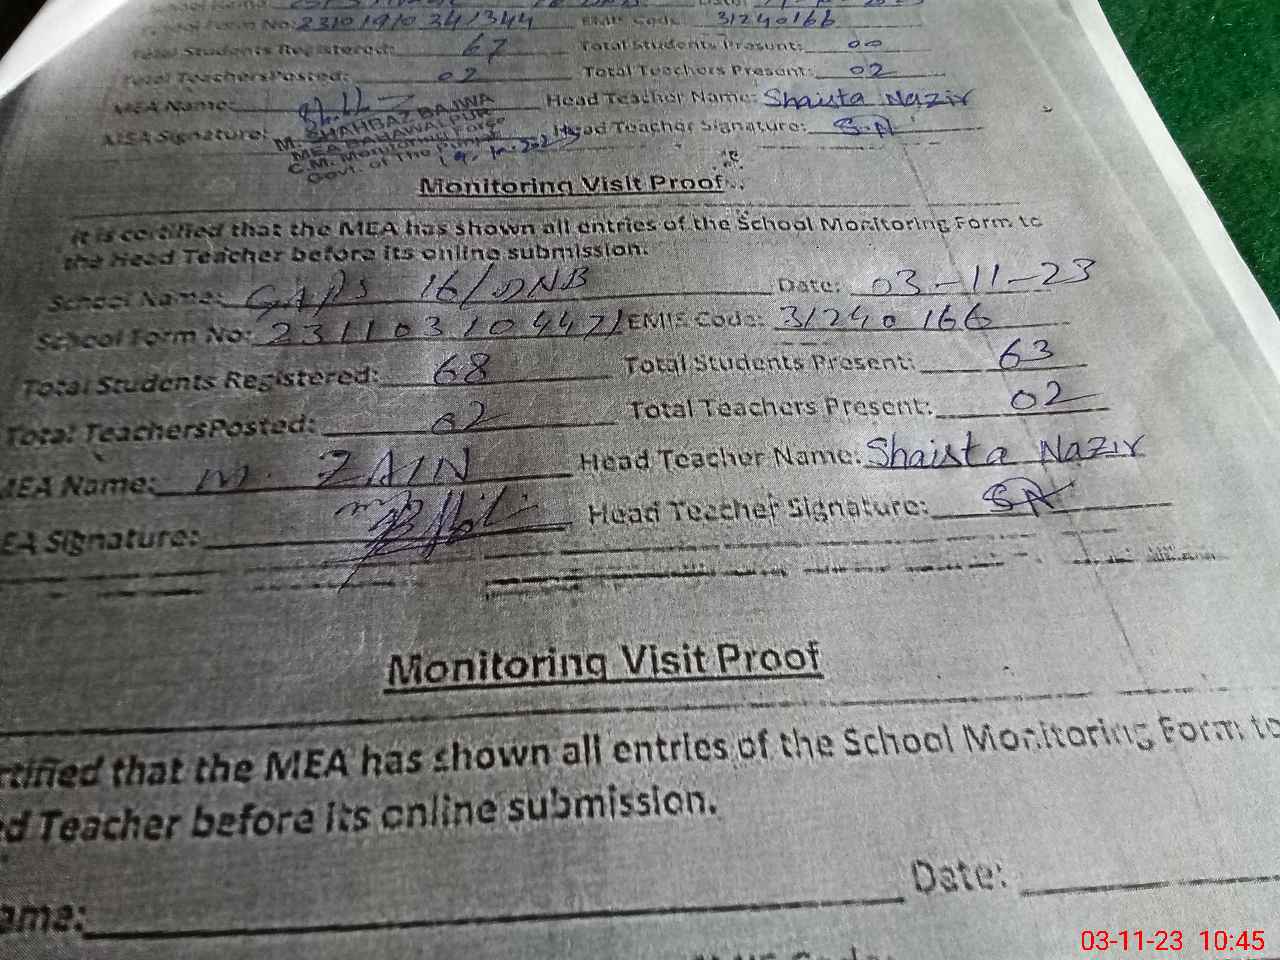 School Form No: 2310191034/344 EMIS Code: 31240166
Total Students Registered: 67 Total Students Present: 00
Total TeachersPosted: 02 Total Teachers Present: 02
MEA Name: Head Teacher Name: Shaista Nazir
MEA Signature: Head Teacher Signature: S.N
M. SHAHBAZ BAJWA
MEA BAHAWALPUR
C.M. Monitoring Force
Govt. of The Punjab
Monitoring Visit Proof
It is certified that the MEA has shown all entries of the School Monitoring Form to
the Head Teacher before its online submission.
School Name: GGPS 16/DNB Date: 03-11-23
School Form No: 231103104471 EMIS Code: 31240166
Total Students Registered: 68 Total Students Present: 63
Total TeachersPosted: 02 Total Teachers Present: 02
MEA Name: M. ZAIN Head Teacher Name: Shaista Nazir
EA Signature: Head Teacher Signature: SN
Monitoring Visit Proof
rtified that the MEA has shown all entries of the School Monitoring Form to
ed Teacher before its online submission.
ame: Date:
03-11-23 10:45